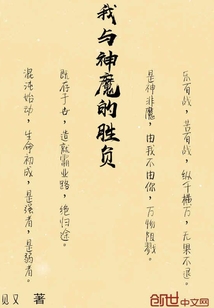 我与神魔的胜负
乐百战，苦百战，纵千横万，无果不退。
是神非魔，由我不由你，万物阻戮。
既存于世，造就霸业路，绝归途。
混沌始动，生命初成，是强者，是弱者。
见又 著
创世中文网
chuangshi.qq.com